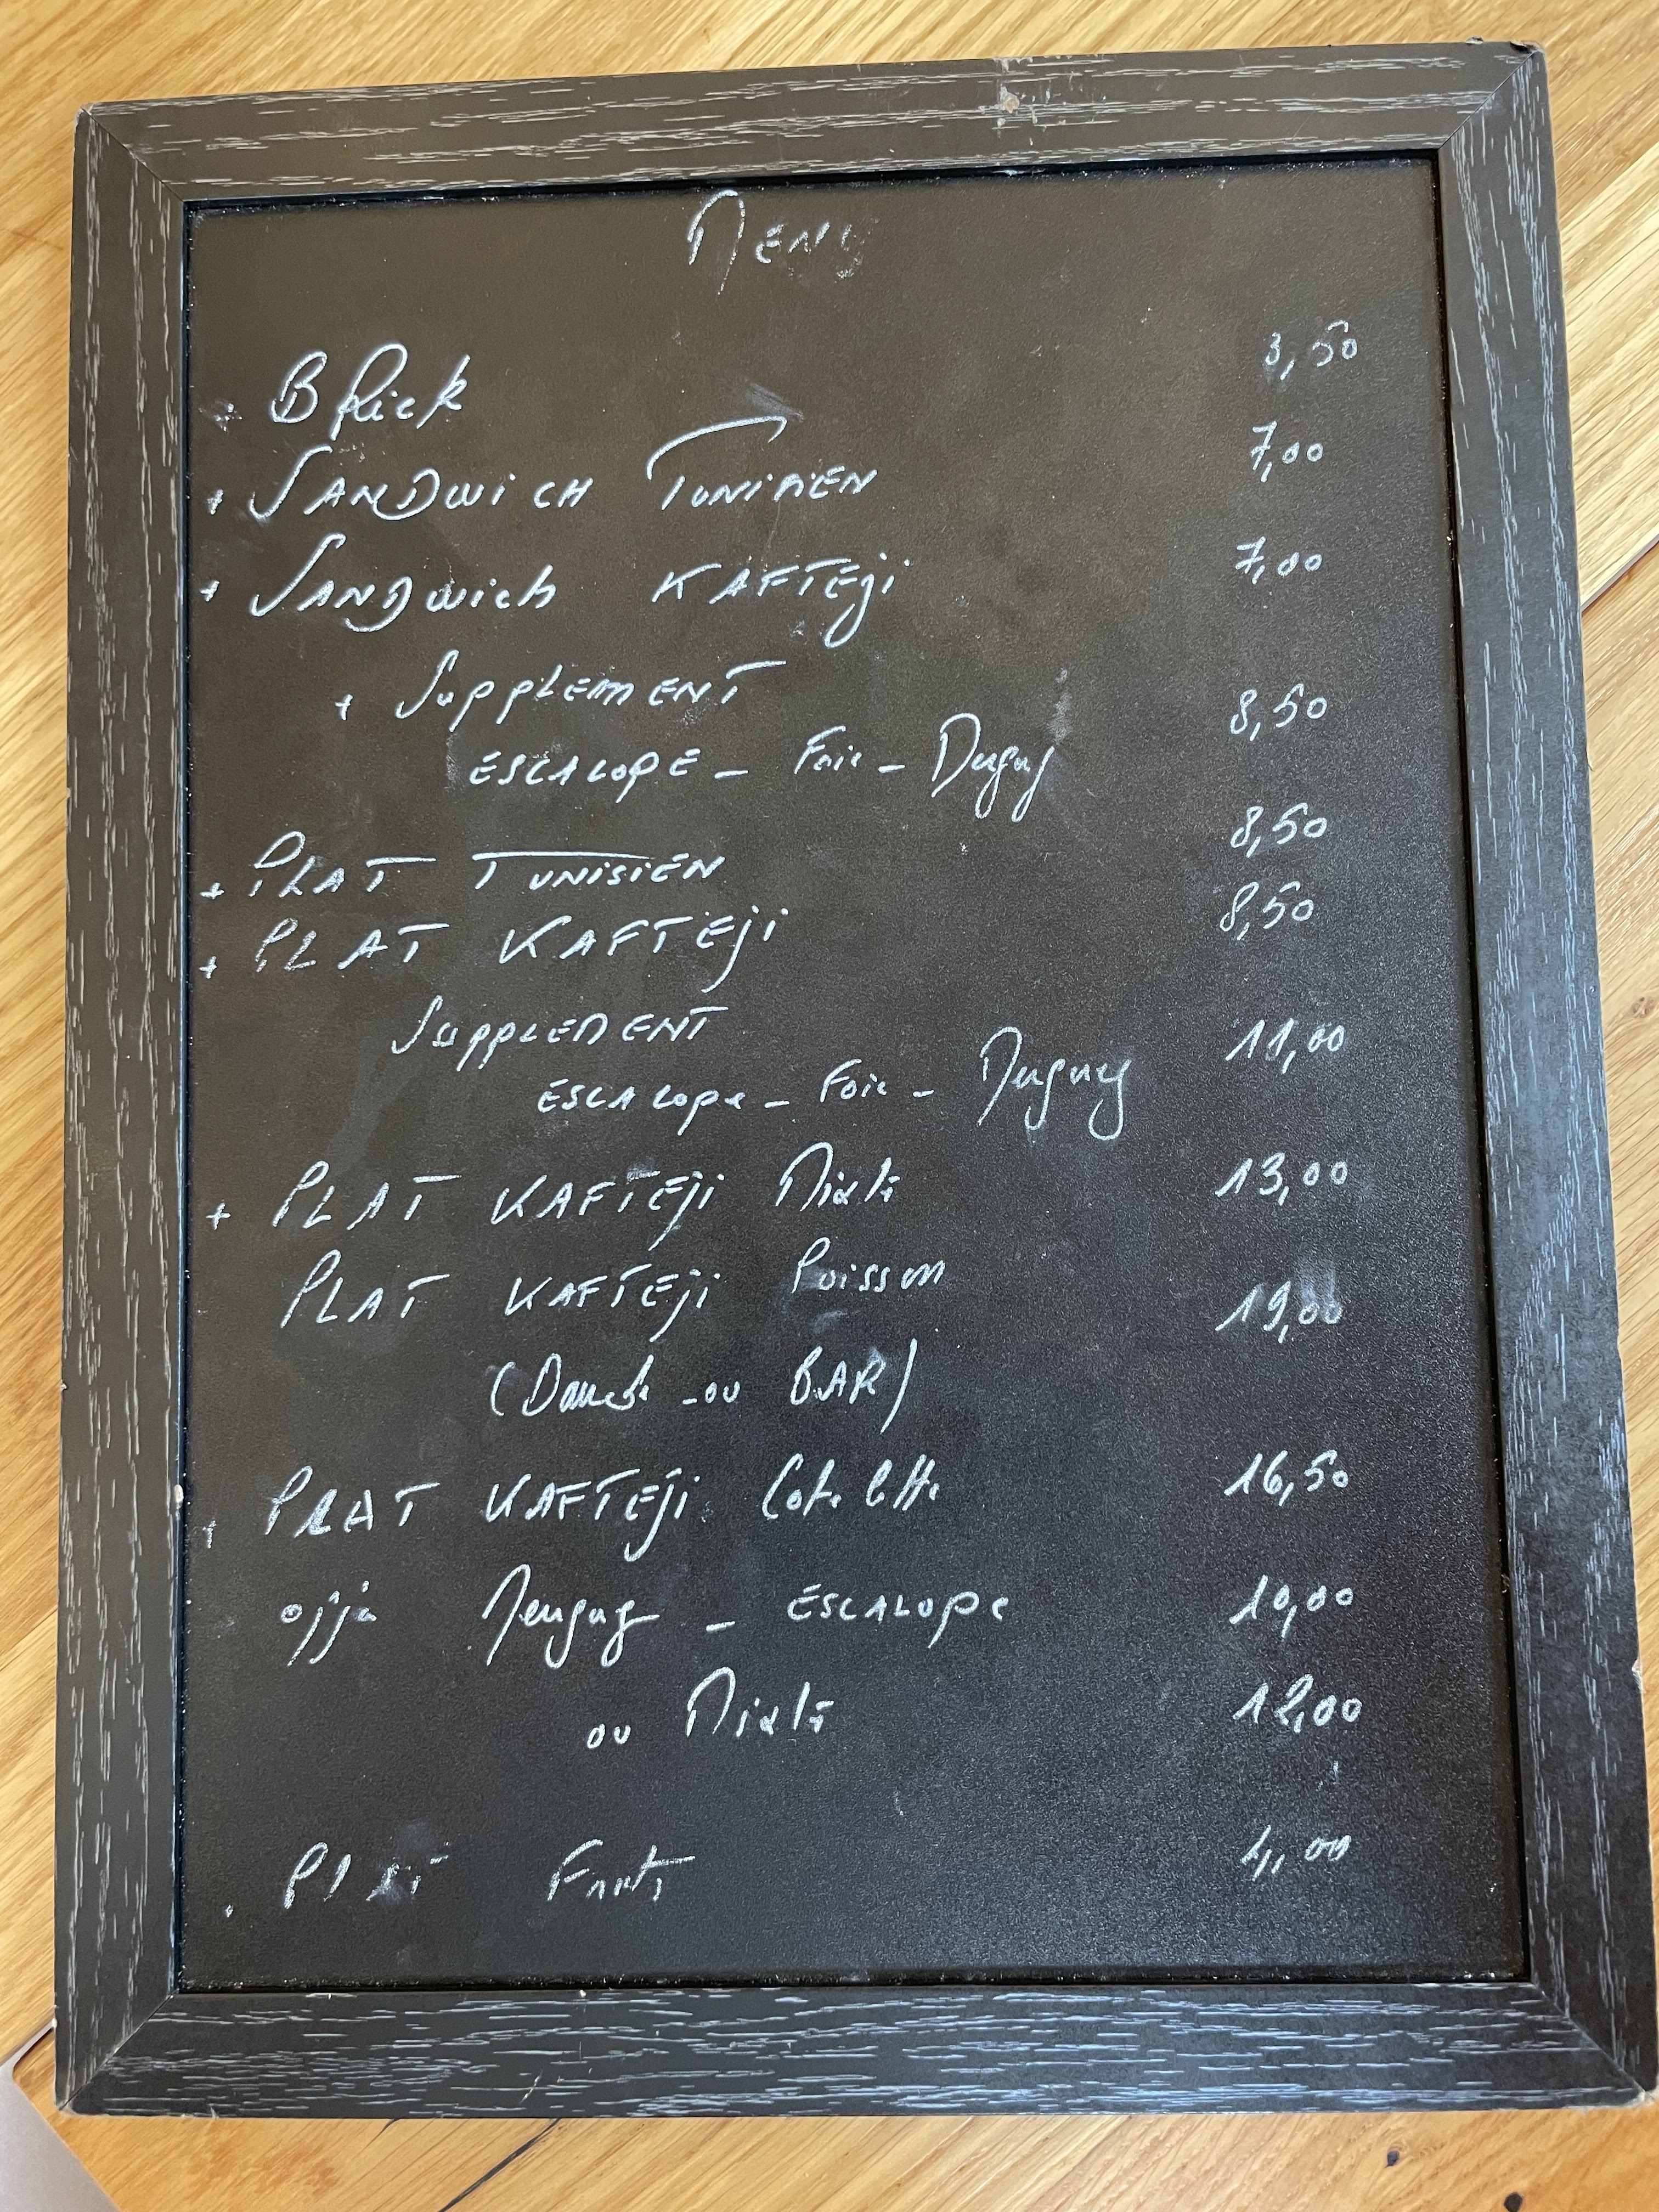 MENU
+ BRick 3,50
+ SANDWiCH TUNiSiEN 7,00
+ SANDwich KAFTEji 7,00
+ SUPPLEMENT
ESCALOPE - Foie - Merguez 8,50
+ PLAT TUNiSiEN 8,50
+ PLAT KAFTEji 8,50
SUPPLEMENT
ESCALOPe - Foie - Merguez 11,00
+ PLAT KAFTEji Mixte 13,00
PLAT KAFTEji Poisson 19,00
(Daurade - ou BAR)
+ PLAT KAFTEji Cotelette 16,50
ojja Merguez - ESCALOPe 10,00
ou Mixte 12,00
. PLAT 4,00